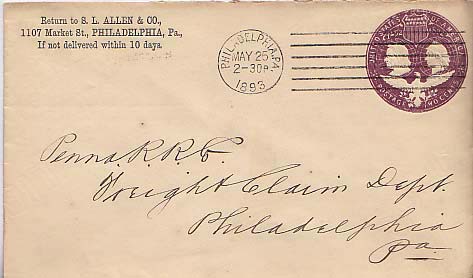 Return to S. L. ALLEN & CO.,
1107 Market St., PHILADELPHIA, Pa.,
If not delivered within 10 days.
PHILADELPHIA, PA.
MAY 25
2-30P
1893
UNITED STATES OF AMERICA
POSTAGE TWO CENTS
Penna. R. R. Co.
Freight Claim Dept.
Philadelphia
Pa.